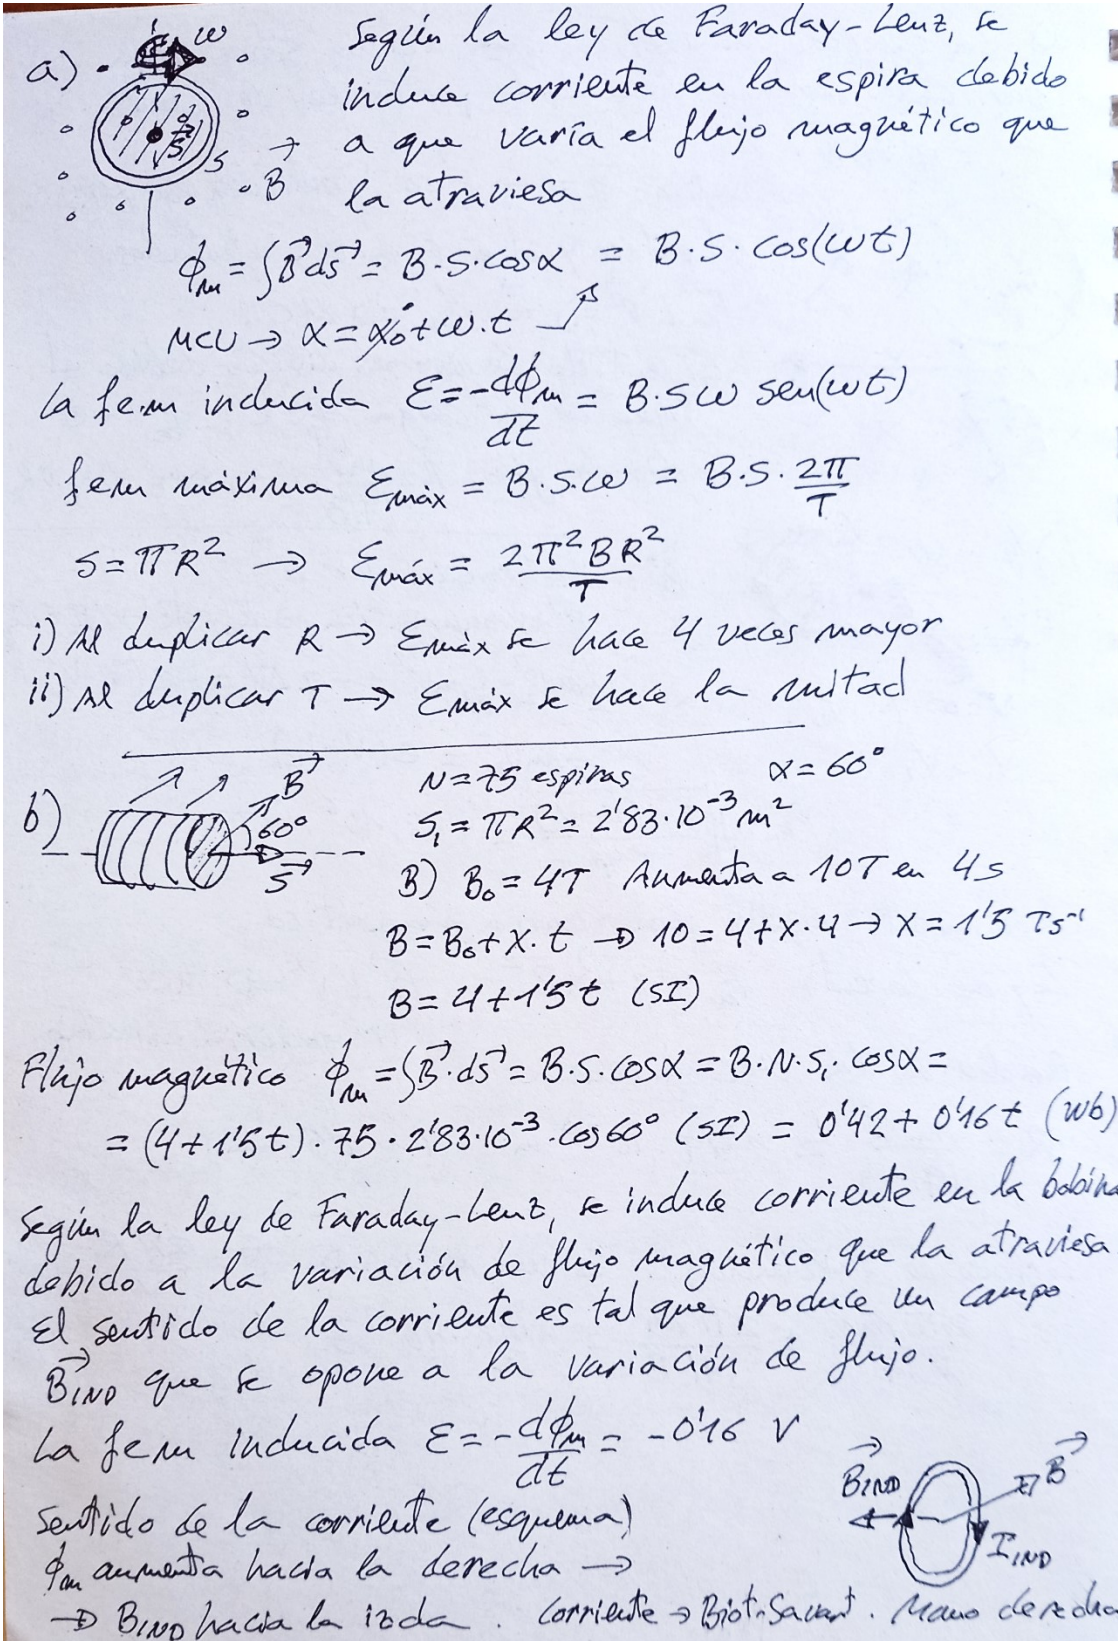 a) ω Según la ley de Faraday-Lenz, se
induce corriente en la espira debido
S a que varía el flujo magnético que
B⃗ la atraviesa
ϕm = ∫B⃗ dS⃗ = B·S·cosα = B·S·cos(ωt)
MCU → α = α0 + ω·t
La fem inducida ε = -dϕm/dt = B·Sω sen(ωt)
fem máxima εmáx = B·S·ω = B·S·2π/T
S = πR² → εmáx = 2π²BR²/T
i) Al duplicar R → εmáx se hace 4 veces mayor
ii) Al duplicar T → εmáx se hace la mitad
b) B⃗ 60° S⃗ N = 75 espiras α = 60°
S1 = πR² = 2'83·10⁻³ m²
B) B0 = 4T Aumenta a 10T en 4s
B = B0 + x·t → 10 = 4 + x·4 → x = 1'5 Ts⁻¹
B = 4 + 1'5t (SI)
Flujo magnético ϕm = ∫B⃗·dS⃗ = B·S·cosα = B·N·S1·cosα =
= (4+1'5t)·75·2'83·10⁻³·cos60° (SI) = 0'42 + 0'16t (Wb)
Según la ley de Faraday-Lenz, se induce corriente en la bobina
debido a la variación de flujo magnético que la atraviesa
El sentido de la corriente es tal que produce un campo
B⃗IND que se opone a la variación de flujo.
La fem inducida ε = -dϕm/dt = -0'16 V
Sentido de la corriente (esquema) B⃗IND B⃗ IIND
ϕm aumenta hacia la derecha →
→ BIND hacia la izda. Corriente → Biot-Savart. Mano derecha